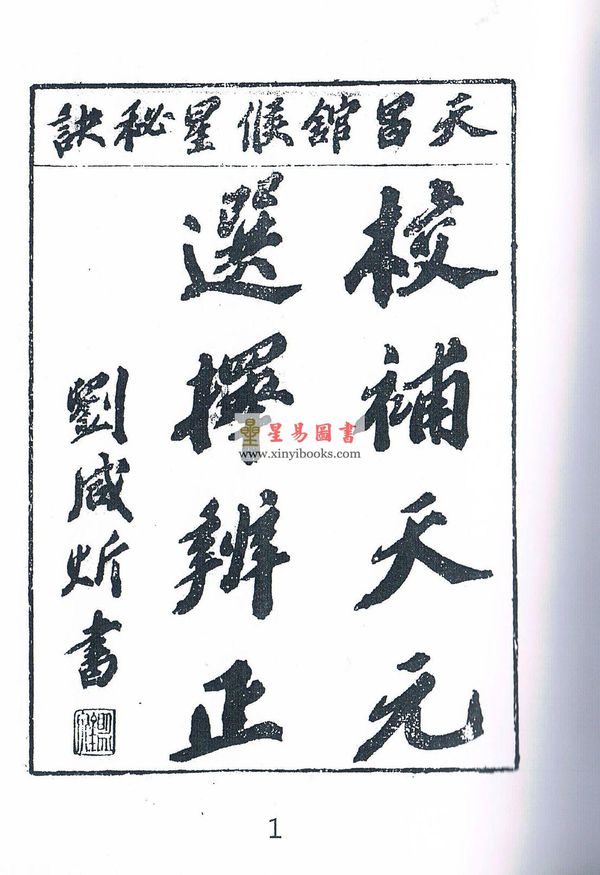 天昌館候星秘訣
校補天元
選擇辨正
劉咸炘書
星易圖書
www.xinyibooks.com
1